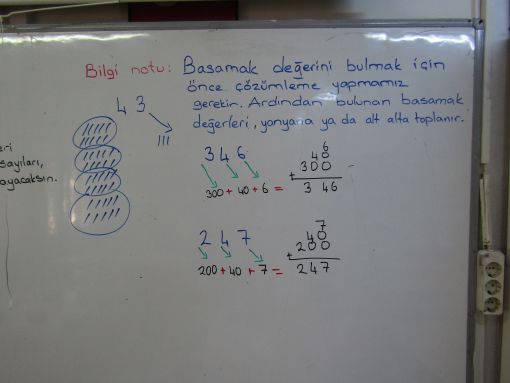 Bilgi notu: Basamak değerini bulmak için
önce çözümleme yapmamız
gerekir. Ardından bulunan basamak
değerleri, yanyana ya da alt alta toplanır.
43
III
sayıları,
ayacaksın.
346
300 + 40 + 6 =
6
40
300
+
346
247
200 + 40 + 7 =
7
40
200
+
247